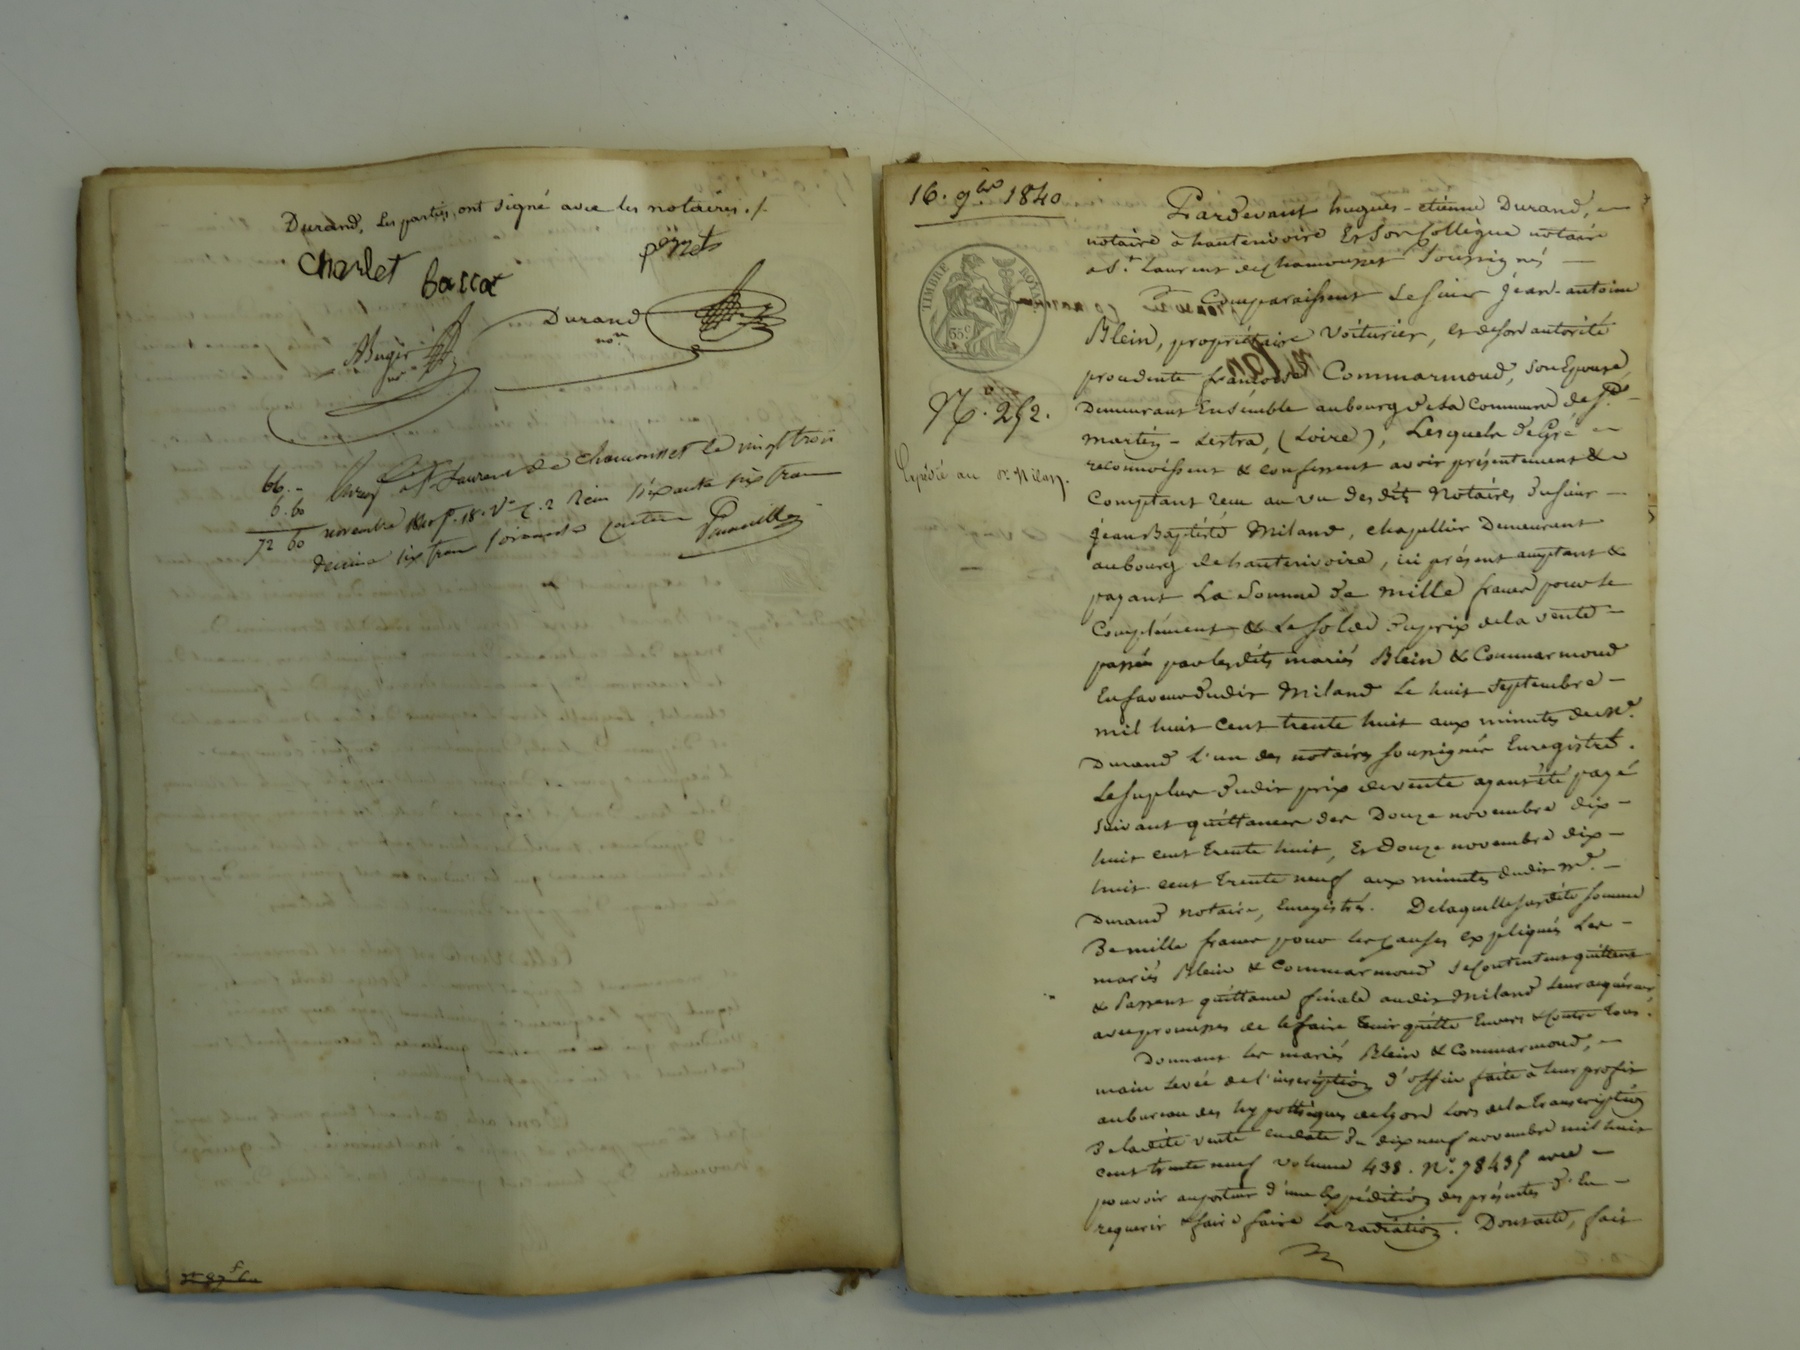 Durand, les parties ont signé avec les notaires ./.
Charlet
Baccot
ponet
Durand
nore
66.-
6.60
72 60
à St Laurent de chamousset le vingt trois
novembre 1840 f. 18. Vo C. 2 Reçu soixante six francs
décime six francs soixante centimes
16. 9bre 1840
TIMBRE ROYAL
35c
No. 252.
Expédié au Sr. Milan.
Pardevant hugues-etienne Durand, -
notaire à hauterivoire Et Son Collègue notaire
a St. Laurent de chamousset Soussignés -
Comparaissent Le sieur Jean-antoine
Blein, propriétaire Voiturier, et de son autorité
procédante françoise Commarmond, son Epouse,
Demeurant Ensemble au bourg de la Commune de St. -
martin - Lestra, (Loire), Lesquels de Gré -
reconnoissent & confessent avoir présentement &
Comptant reçu au vu des dits Notaires du sieur -
Jean Baptiste Miland, chapellier Demeurant
au bourg de hauterivoire, ici présent acceptant &
payant La Somme de mille francs pour le
Complément & Le solde du prix de la vente -
passée par les dits mariés Blein & Commarmond
En faveur dudit Miland Le huit septembre -
mil huit Cent trente huit aux minutes de Me.
Durand L'un des notaires soussignés Enregistré.
Le surplus dudit prix de vente ayant été payé
Suivant quittances des Douze novembre dix -
huit cent trente huit, Et Douze novembre dix -
huit cent trente neuf aux minutes dudit Me. -
Durand notaire, Enregistrés. De laquelle susdite somme
De mille francs pour les causes expliqués Les -
mariés Blein & Commarmond se contentent quittent
& Passent quittance finale audit Miland Leur acquéreur
avec promesse de le faire tenir quitte Envers & Contre tous.
Donnant les mariés Blein & Commarmond, -
main levée de l'inscription d'office faite à leur profit
au bureau des hypothèques de Lyon Lors de la transcription
De la dite vente en date du dix neuf novembre mil huit
cent trente neuf volume 438. No. 78435 avec -
pouvoir au porteur d'une Expédition des présentes d'En -
requérir & faire faire La radiation. Dont acte, fait